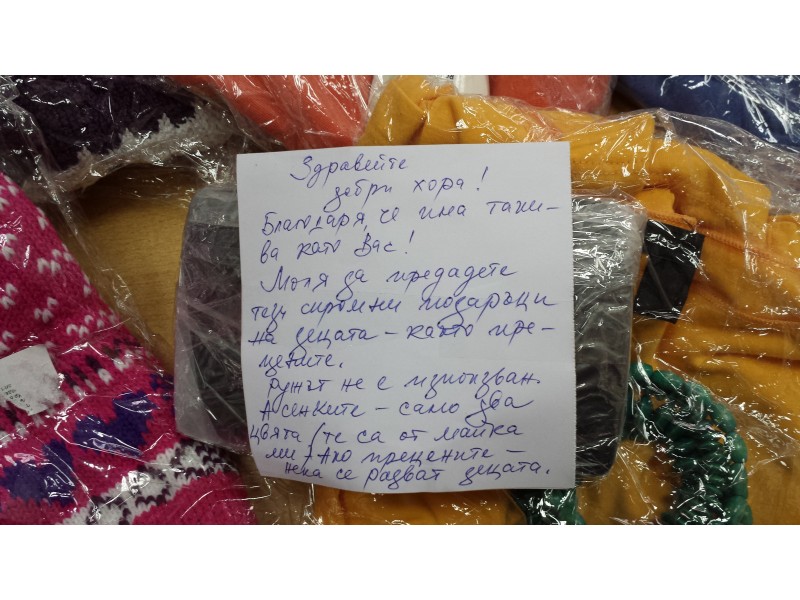 Здравейте
добри хора!
Благодаря, че има таки-
ва като Вас!
Моля да предадете
тези скромни подаръци
на децата – както пре-
цените.
Ружът не е използван.
А сенките – само два
цвята (те са от майка
ми) Ако прецените –
нека се радват децата.